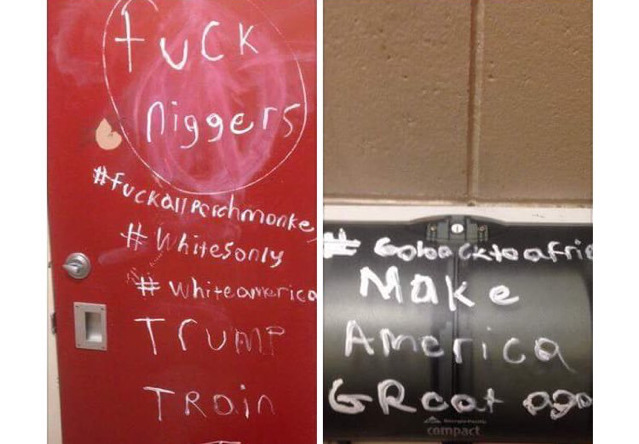 fuck
niggers
#fuckallporchmonke
#Whitesonly
#whiteamerica
TRUMP
TRain
#Gobacktoafric
Make
America
GReat aga
compact